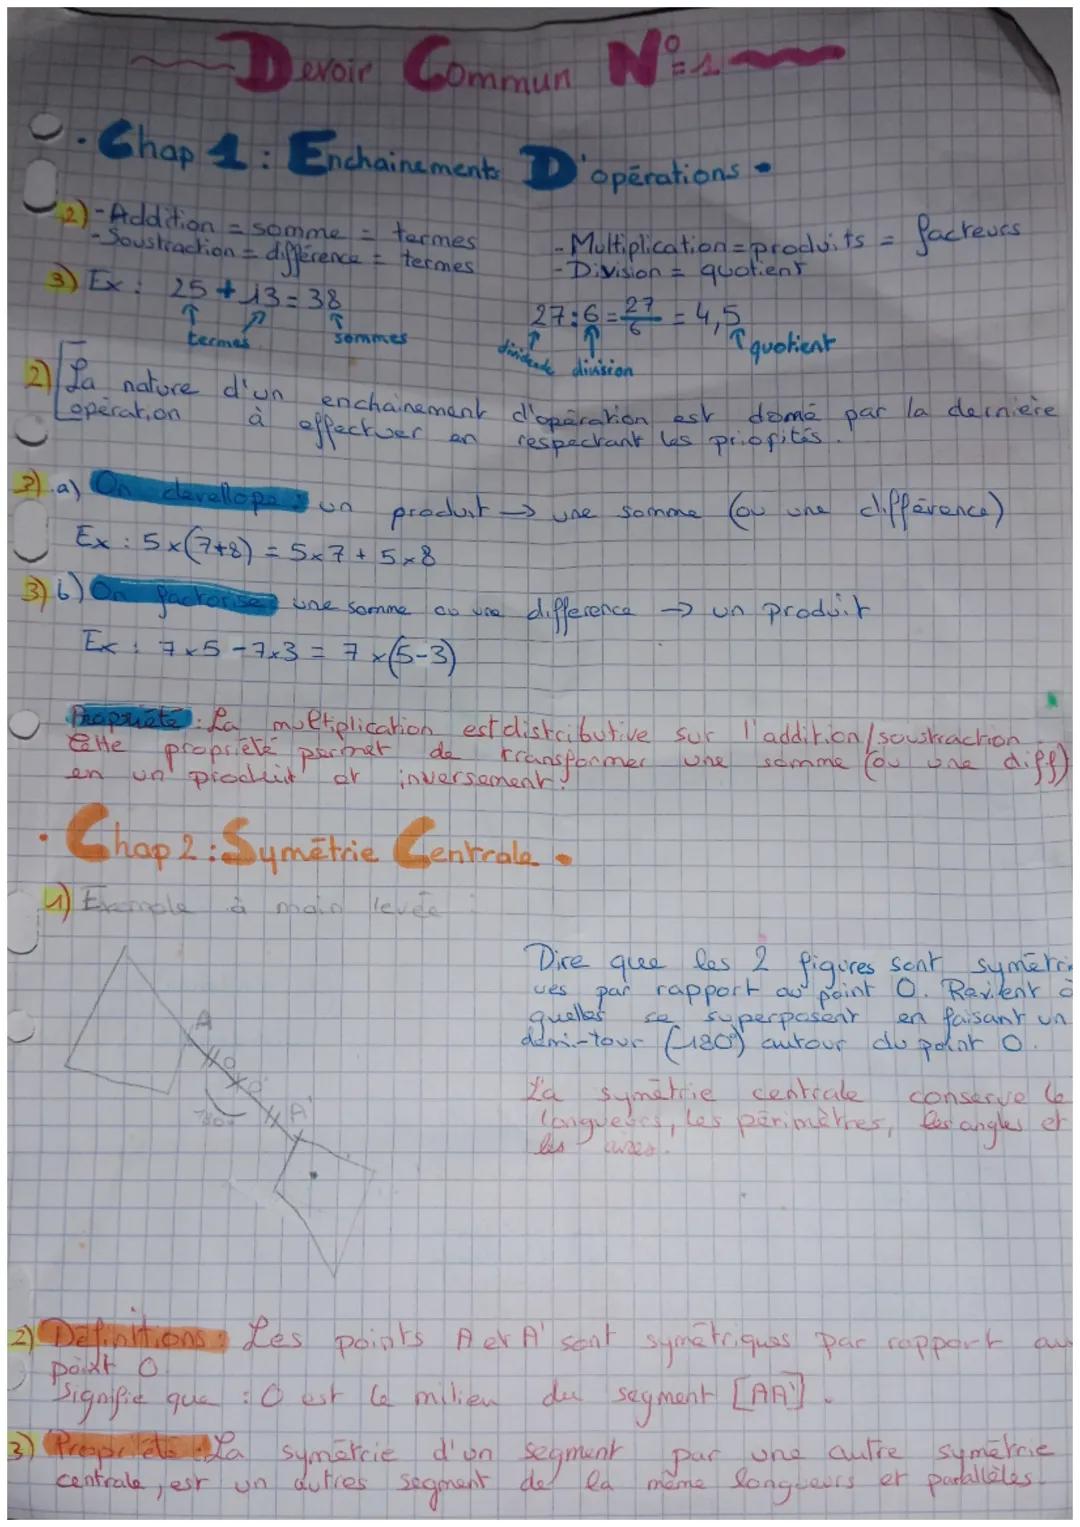 Devoir Commun N°=1
• Chap 1 : Enchainements D'opérations •
2) - Addition = somme = termes
- Soustraction = différence = termes
- Multiplication = produits = facteurs
- Division = quotient
3) Ex : 25 + 13 = 38
termes
sommes
27 : 6 = 27/6 = 4,5
dividende division
quotient
2) La nature d'un enchainement d'opération est domé par la dernière
opération à effectuer en respectant les priopités.
3) a) On devellope : un produit → une somme (ou une différence)
Ex : 5 x (7+8) = 5x7 + 5x8
3) b) On factorise une somme ou une difference → un produit
Ex : 7x5 - 7x3 = 7 x (5-3)
Propriété : La multiplication est distributive sur l'addition/soustraction.
Cette propriété permet de transformer une somme (ou une diff)
en un produit et inversement.
• Chap 2 : Symétrie Centrale •
1) Exemple à main levée :
A
O
A'
180°
Dire que les 2 figures sont symétri
ues par rapport au point O. Revient à
quelles se superposent en faisant un
demi-tour (180°) autour du point O.
La symétrie centrale conserve le
longueurs, les périmètres, les angles et
les aires.
2) Définitions : Les points A et A' sont symétriques par rapport au
point O.
Signifie que : O est le milieu du segment [AA'].
3) Propriété : La symétrie d'un segment par une autre symétrie
centrale, est un autres segment de la même longueurs et parallèles.